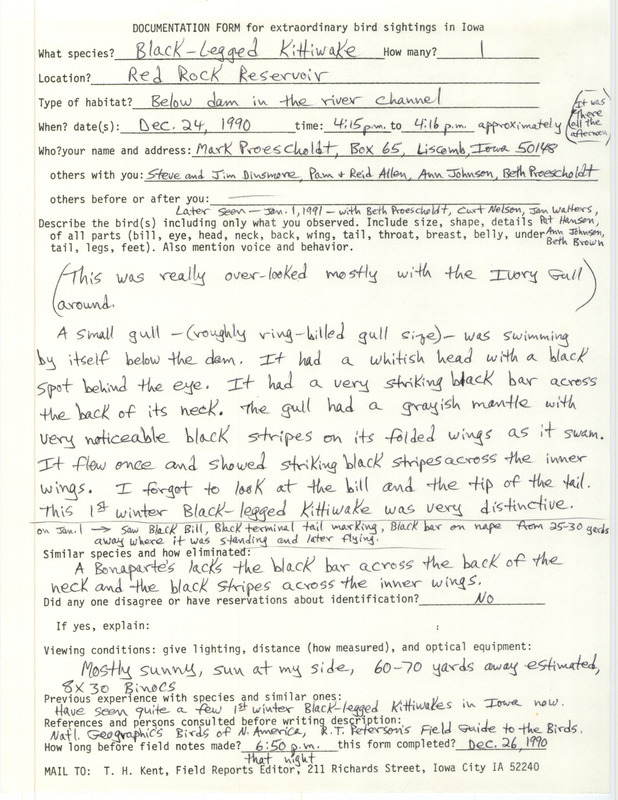 DOCUMENTATION FORM for extraordinary bird sightings in Iowa
What species? Black-Legged Kittiwake How many? 1
Location? Red Rock Reservoir
Type of habitat? Below dam in the river channel
When? date(s): Dec. 24, 1990 time: 4:15 p.m. to 4:16 p.m. approximately (It was there all the afternoon)
Who? your name and address: Mark Proescholdt, Box 65, Liscomb, Iowa 50148
others with you: Steve and Jim Dinsmore, Pam + Reid Allen, Ann Johnson, Beth Proescholdt
others before or after you:
Later seen - Jan. 1, 1991 - with Beth Proescholdt, Curt Nelson, Jan Walters, Pat Hansen, Ann Johnson, Beth Brown
Describe the bird(s) including only what you observed. Include size, shape, details
of all parts (bill, eye, head, neck, back, wing, tail, throat, breast, belly, under
tail, legs, feet). Also mention voice and behavior.
(This was really over-looked mostly with the Ivory Gull
around.)
A small gull - (roughly ring-billed gull size) - was swimming
by itself below the dam. It had a whitish head with a black
spot behind the eye. It had a very striking black bar across
the back of its neck. The gull had a grayish mantle with
very noticeable black stripes on its folded wings as it swam.
It flew once and showed striking black stripes across the inner
wings. I forgot to look at the bill and the tip of the tail.
This 1st winter Black-legged Kittiwake was very distinctive.
on Jan. 1 → Saw Black Bill, Black terminal tail marking, Black bar on nape from 25-30 yards
away where it was standing and later flying.
Similar species and how eliminated:
A Bonaparte's lacks the black bar across the back of the
neck and the black stripes across the inner wings.
Did any one disagree or have reservations about identification? No
If yes, explain:
Viewing conditions: give lighting, distance (how measured), and optical equipment:
Mostly sunny, sun at my side, 60-70 yards away estimated,
8X30 Binocs
Previous experience with species and similar ones:
Have seen quite a few 1st winter Black-legged Kittiwakes in Iowa now.
References and persons consulted before writing description:
Natl. Geographics Birds of N. America, R.T. Peterson's Field Guide to the Birds.
How long before field notes made? 6:50 p.m. this form completed? Dec. 26, 1990
that night
MAIL TO: T. H. Kent, Field Reports Editor, 211 Richards Street, Iowa City IA 52240